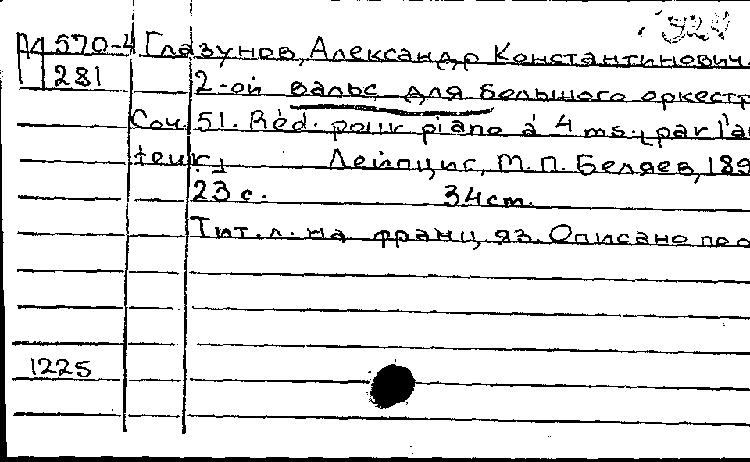 924
М 570-4 Глазунов, Александр Константинович.
281 2-ой вальс для большого оркестр
Соч. 51. Réd. pour piano à 4 ms. par l'au
teur. Лейпциг, М.П. Беляев, 189
23 с. 34 cm.
Тит. л. на франц. яз. Описано по о
1225